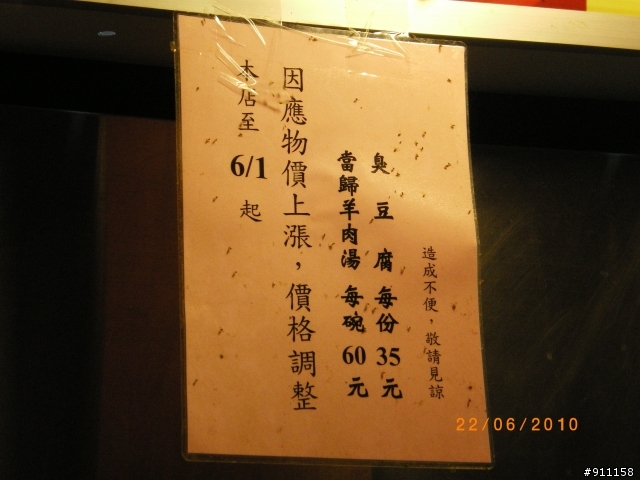 本店至
6/1
起
因應物價上漲，價格調整
當歸羊肉湯 每碗 60 元
臭豆腐 每份 35 元
造成不便，敬請見諒
22/06/2010
#911158